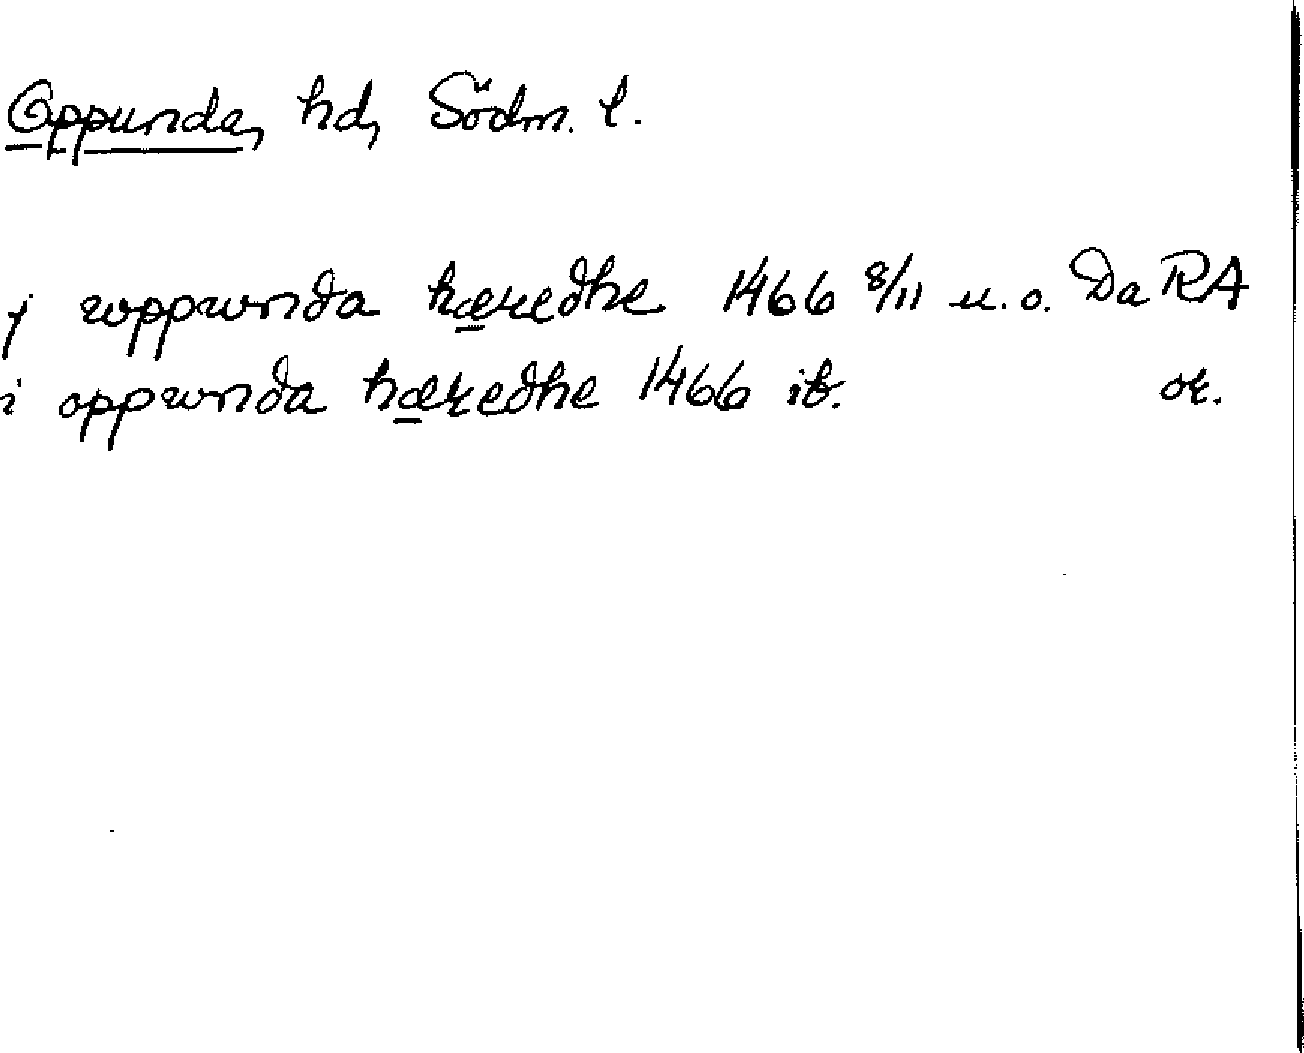 Oppunda, hd, Södm. l.
j woppwnda hæredhe 1466 8/11 u.o. Da RA
i oppwnda hæredhe 1466 ib. or.